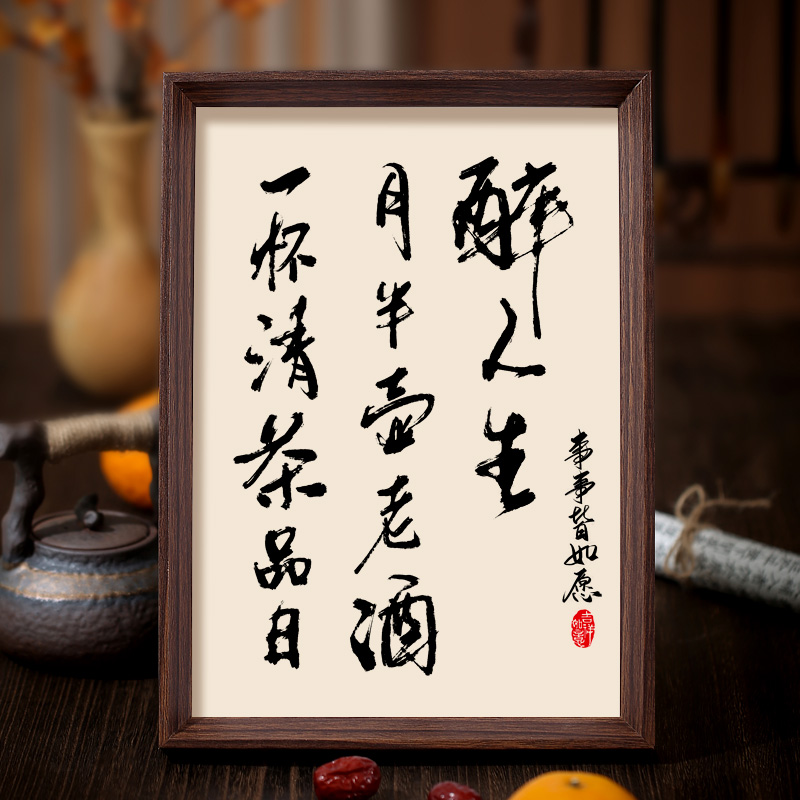 一杯清茶品日
月半壶老酒
醉人生
事事皆如愿
吉祥
如意